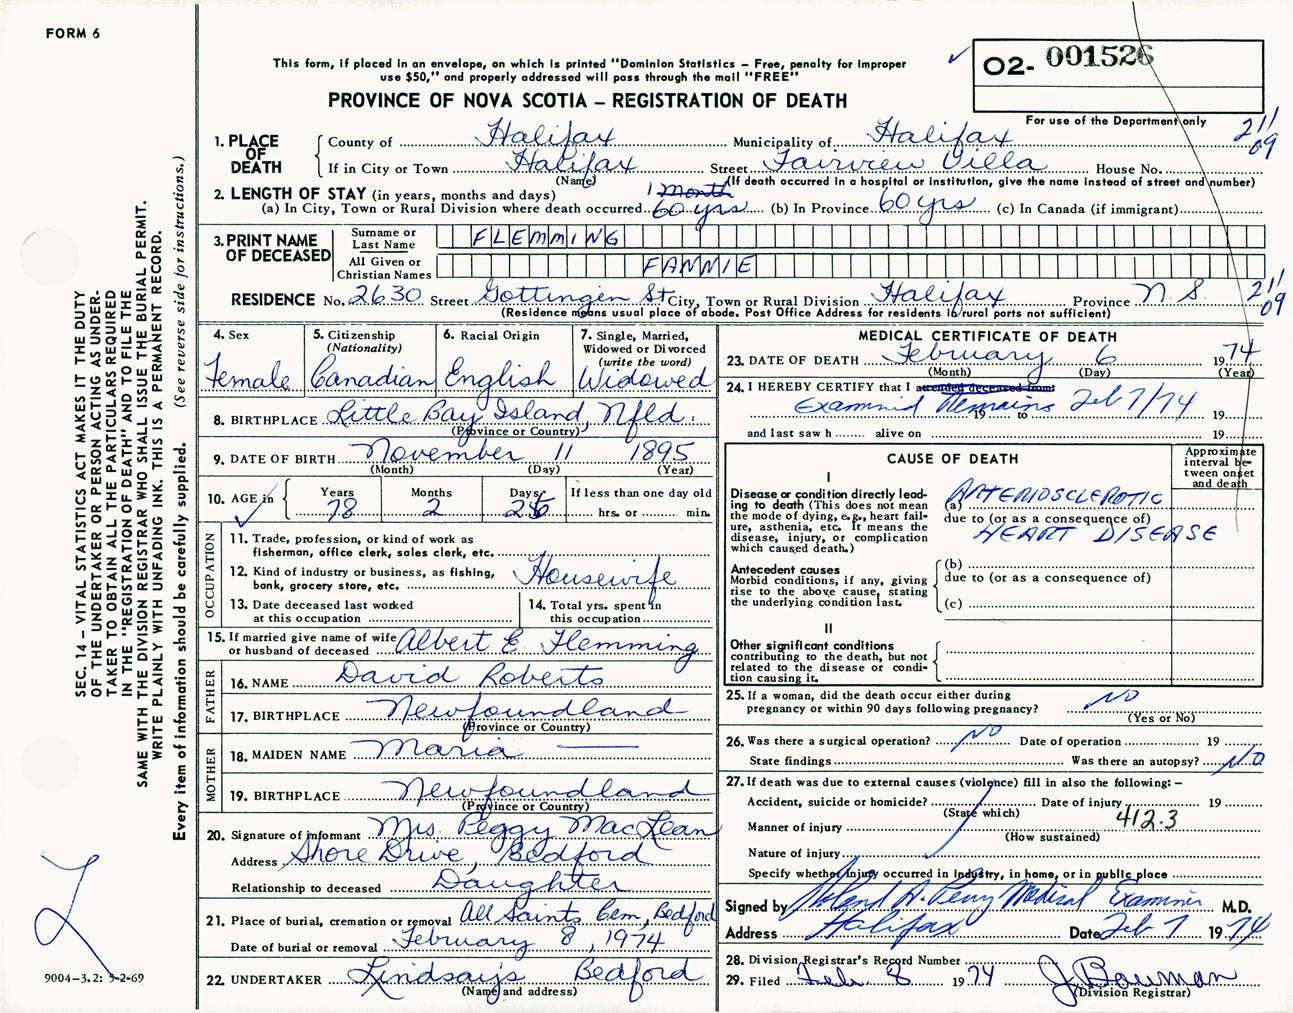 FORM 6
This form, if placed in an envelope, on which is printed "Dominion Statistics – Free, penalty for improper
use $50," and properly addressed will pass through the mail "FREE"
O2- 001526
PROVINCE OF NOVA SCOTIA – REGISTRATION OF DEATH
For use of the Department only
211
09
1. PLACE OF DEATH
County of Halifax Municipality of Halifax
If in City or Town Halifax Street Fairview Villa House No.
(Name) (If death occurred in a hospital or institution, give the name instead of street and number)
2. LENGTH OF STAY (in years, months and days) 1 month
(a) In City, Town or Rural Division where death occurred 60 yrs (b) In Province 60 yrs (c) In Canada (if immigrant)
3. PRINT NAME OF DECEASED
Surname or Last Name FLEMMING
All Given or Christian Names FANNIE
RESIDENCE No. 2630 Street Gottingen St City, Town or Rural Division Halifax Province N.S. 211
09
(Residence means usual place of abode. Post Office Address for residents in rural parts not sufficient)
4. Sex
Female
5. Citizenship
(Nationality)
Canadian
6. Racial Origin
English
7. Single, Married,
Widowed or Divorced
(write the word)
Widowed
8. BIRTHPLACE Little Bay Island, Nfld.
(Province or Country)
9. DATE OF BIRTH November 11 1895
(Month) (Day) (Year)
10. AGE in
Years 78
Months 2
Days
If less than one day old
hrs. or min.
OCCUPATION
11. Trade, profession, or kind of work as
fisherman, office clerk, sales clerk, etc.
12. Kind of industry or business, as fishing,
bank, grocery store, etc. Housewife
13. Date deceased last worked
at this occupation
14. Total yrs. spent in
this occupation
15. If married give name of wife
or husband of deceased Albert E. Flemming
FATHER
16. NAME David Roberts
17. BIRTHPLACE Newfoundland
(Province or Country)
MOTHER
18. MAIDEN NAME Maria
19. BIRTHPLACE Newfoundland
(Province or Country)
20. Signature of informant Mrs. Peggy MacLean
Address Shore Drive, Bedford
Relationship to deceased Daughter
21. Place of burial, cremation or removal All Saints Cem, Bedford
Date of burial or removal February 8, 1974
22. UNDERTAKER Lindsay's Bedford
(Name and address)
MEDICAL CERTIFICATE OF DEATH
23. DATE OF DEATH February 6 1974
(Month) (Day) (Year)
24. I HEREBY CERTIFY that I attended deceased from:
Examined Remains Feb 7/74 19 to 19
and last saw h alive on 19
CAUSE OF DEATH
Approximate
interval be-
tween onset
and death
I
Disease or condition directly lead-
ing to death (This does not mean
the mode of dying, e.g., heart fail-
ure, asthenia, etc. It means the
disease, injury, or complication
which caused death.)
(a) ARTERIOSCLEROTIC
due to (or as a consequence of)
HEART DISEASE
Antecedent causes
Morbid conditions, if any, giving
rise to the above cause, stating
the underlying condition last.
(b)
due to (or as a consequence of)
(c)
II
Other significant conditions
contributing to the death, but not
related to the disease or condi-
tion causing it.
25. If a woman, did the death occur either during
pregnancy or within 90 days following pregnancy? NO
(Yes or No)
26. Was there a surgical operation? NO Date of operation 19
State findings Was there an autopsy? NO
27. If death was due to external causes (violence) fill in also the following: –
Accident, suicide or homicide? Date of injury 19
(State which)
412.3
Manner of injury
(How sustained)
Nature of injury
Specify whether injury occurred in industry, in home, or in public place
Signed by Roland A. Perry Medical Examiner M.D.
Address Halifax Date Feb 7 1974
28. Division Registrar's Record Number
29. Filed Feb. 8 1974 J. Bowman
(Division Registrar)
SEC. 14 – VITAL STATISTICS ACT MAKES IT THE DUTY
OF THE UNDERTAKER OR PERSON ACTING AS UNDER-
TAKER TO OBTAIN ALL THE PARTICULARS REQUIRED
IN THE "REGISTRATION OF DEATH" AND TO FILE THE
SAME WITH THE DIVISION REGISTRAR WHO SHALL ISSUE THE BURIAL PERMIT.
WRITE PLAINLY WITH UNFADING INK. THIS IS A PERMANENT RECORD.
Every item of information should be carefully supplied. (See reverse side for instructions.)
9004–3.2: 5-2-69